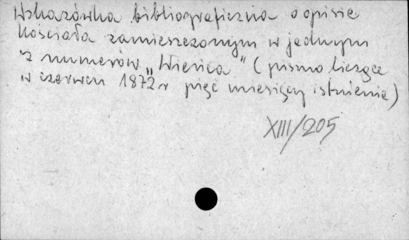 Wskazówka bibliograficzna o opisie
kościoła zamieszczonym w jednym
z numerów „Wieńca" (pismo liczące
w czerwcu 1872 r pięć miesięcy istnienia)
XIII/205